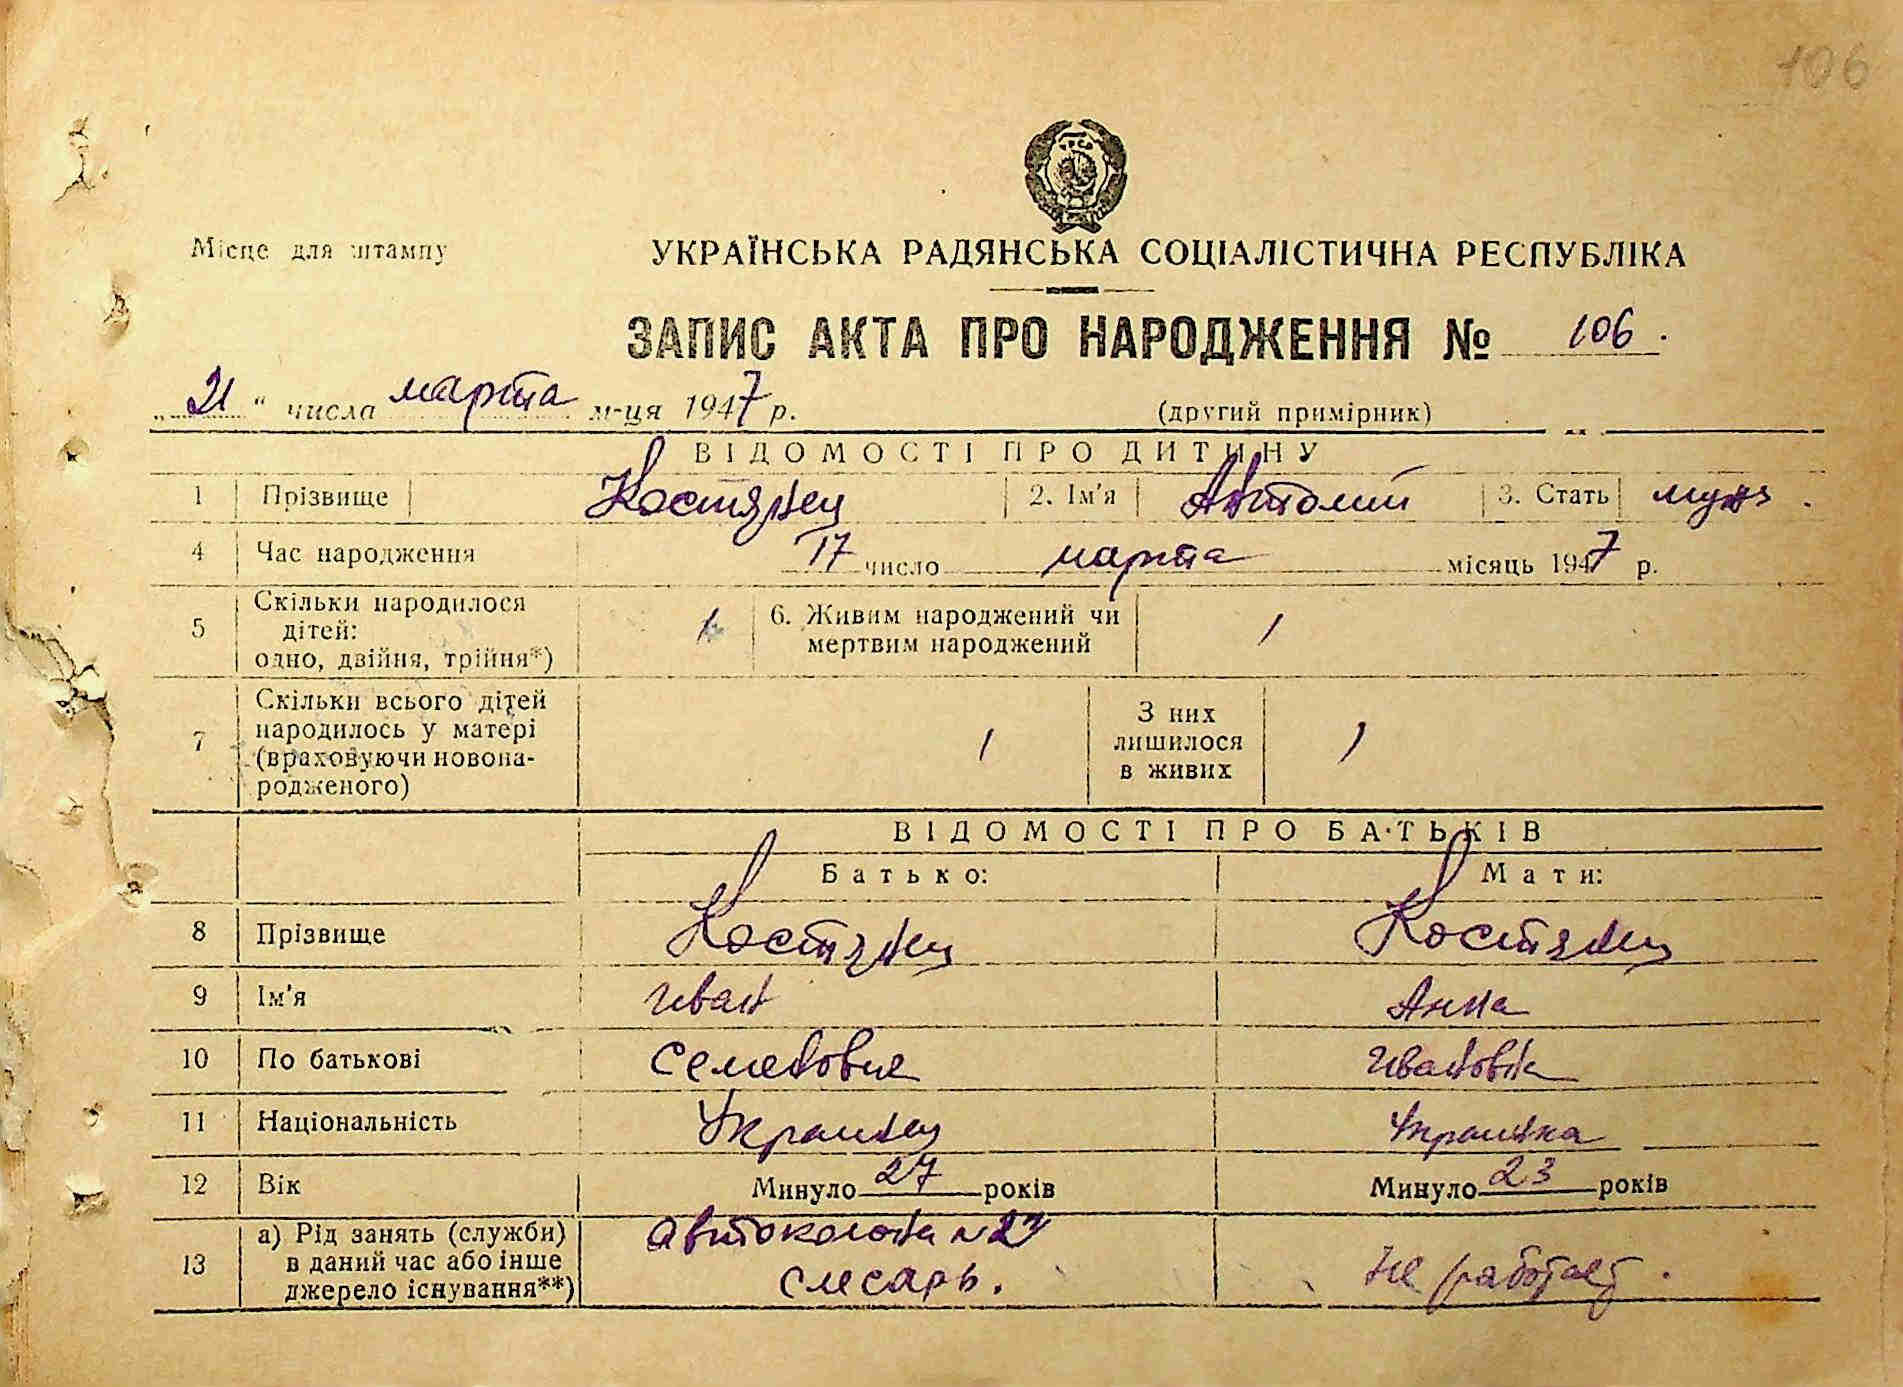 106
Місце для штампу
УКРАЇНСЬКА РАДЯНСЬКА СОЦІАЛІСТИЧНА РЕСПУБЛІКА
ЗАПИС АКТА ПРО НАРОДЖЕННЯ № 106.
„21“ числа марта м-ця 1947 р. (другий примірник)
ВІДОМОСТІ ПРО ДИТИНУ
1 Прізвище Костянец 2. Ім'я Антолий 3. Стать муж.
4 Час народження 17 число марта місяць 1947 р.
5 Скільки народилося дітей: одно, двійня, трійня*) 1 6. Живим народжений чи мертвим народжений 1
7 Скільки всього дітей народилось у матері (враховуючи новонародженого) 1 З них лишилося в живих 1
ВІДОМОСТІ ПРО БАТЬКІВ
Батько: Мати:
8 Прізвище Костянец Костянец
9 Ім'я Иван Анна
10 По батькові Семенович Ивановна
11 Національність Украинец Украинка
12 Вік Минуло 27 років Минуло 23 років
13 а) Рід занять (служби) в даний час або інше джерело існування**) Автоколона N слесарь. Не работает.